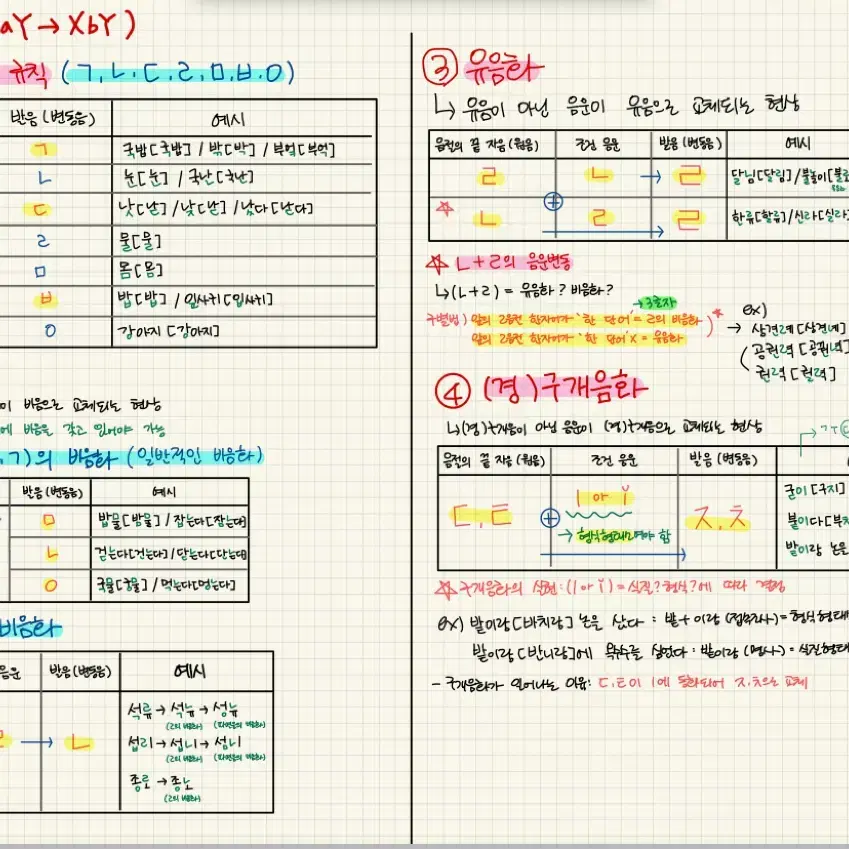 aY → XbY )
규칙 (ㄱ,ㄴ,ㄷ,ㄹ,ㅁ,ㅂ,ㅇ)
발음 (변동음) 예시
ㄱ 국밥[국빱] / 밖[박] / 부엌[부억]
ㄴ 눈[눈] / 국난[국난]
ㄷ 낫[낟] / 낮[낟] / 났다[낟다]
ㄹ 물[물]
ㅁ 몸[몸]
ㅂ 밥[밥] / 잎사귀[입사귀]
ㅇ 강아지 [강아지]
이 비음으로 교체되는 현상
에 비음을 갖고 있어야 가능
,ㄱ)의 비음화 (일반적인 비음화)
발음 (변동음) 예시
ㅁ 밥물[밤물] / 잡는다[잠는다]
ㄴ 걷는다[건는다] / 닫는다[단는다]
ㅇ 국물[궁물] / 먹는다[멍는다]
비음화
음운 발음 (변동음) 예시
→ ㄴ
석류 → 석뉴 → 성뉴
(ㄹ의 비음화)
섭리 → 섭니 → 섬니
(ㄹ의 비음화)
종로 → 종노
(ㄹ의 비음화)
③ 유음화
↳ 유음이 아닌 음운이 유음으로 교체되는 현상
음절의 끝 자음 (원음) 조건 음운 발음 (변동음) 예시
ㄹ + ㄴ → ㄹ 달님[달림] / 물놀이[물로
☆ ㄴ ㄹ → ㄹ 한류[할류] / 신라[실라]
☆ ㄴ+ㄹ의 음운변동
↳ (ㄴ+ㄹ) = 유음화? 비음화?
→ 3글자
구별법) 앞의 2음절 한자어가 '한 단어' = ㄹ의 비음화
앞의 2음절 한자어가 '한 단어' X = 유음화
ex)
→ 상견례 [상견녜]
공권력 [공꿘녁]
권력 [궐력]
④ (경)구개음화
↳ (경)구개음이 아닌 음운이 (경)구개음으로 교체되는 현상
음절의 끝 자음 (원음) 조건 음운 발음 (변동음)
ㄷ,ㅌ + ㅣ or ǐ → ㅈ,ㅊ
→ 형식형태소여야 함
굳이 [구지]
붙이다[부치
밭이랑 논을
☆ 구개음화의 실현 : (ㅣ or ǐ) = 실질? 형식?에 따라 결정
ex) 밭이랑[바치랑] 논을 샀다 : 밭 + 이랑 (접속조사) = 형식형태
밭이랑[반니랑]에 옥수수를 심었다 : 밭이랑 (명사) = 실질형태
- 구개음화가 일어나는 이유: ㄷ,ㅌ이 ㅣ에 동화되어 ㅈ,ㅊ으로 교체